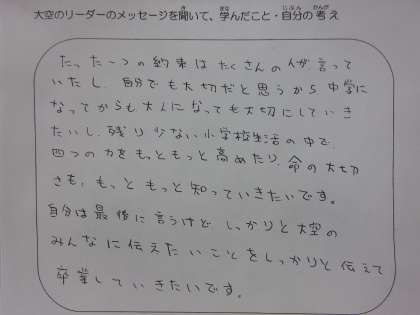 大空のリーダーのメッセージを聞いて、学んだこと・自分の考え
たった一つの約束はたくさんの人が言って
いたし、自分でも大切だと思うから中学に
なってからも大人になっても大切にしていき
たいし、残り少ない小学校生活の中で、
四つの力をもっともっと高めたり、命の大切
さも、もっともっと知っていきたいです。
自分は最後に言うけど、しっかりと大空の
みんなに伝えたいことをしっかりと伝えて
卒業していきたいです。